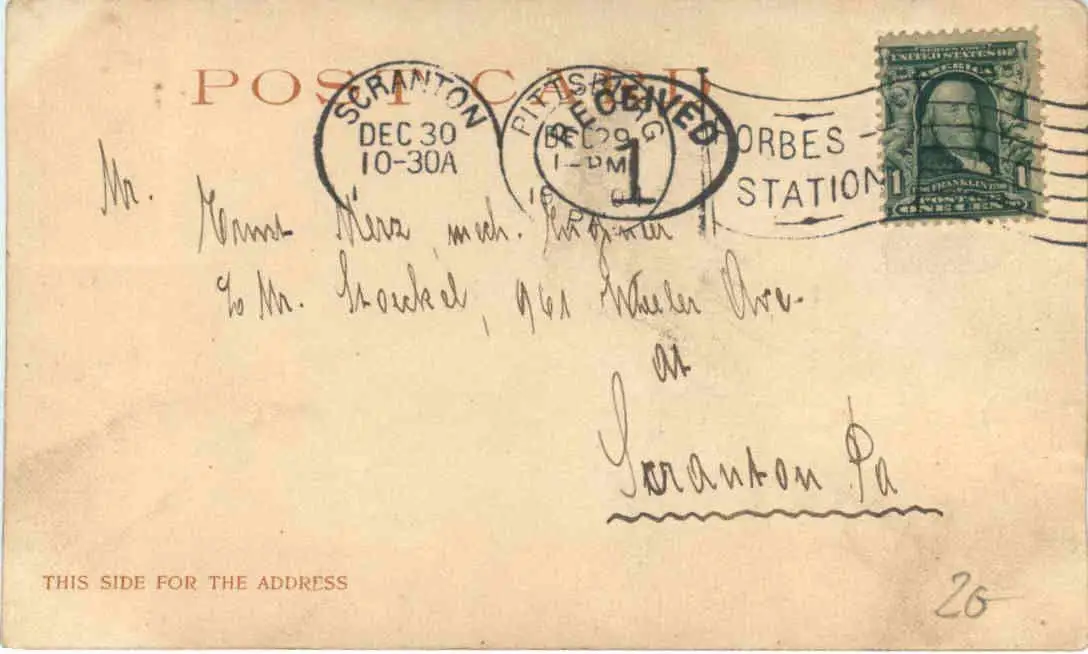 POST CARD
SCRANTON
DEC 30
10-30A
PITTSBURG
DEC 29
1-PM
PA.
RECEIVED
1
FORBES
STATION
SERIES 1902
UNITED STATES OF AMERICA
FRANKLIN
1 ONE CENT 1
Mr.
Ernst Merz, mech. Engineer
c/o Mr. Stoeckel, 961 Wheeler Ave.
at
Scranton Pa
THIS SIDE FOR THE ADDRESS